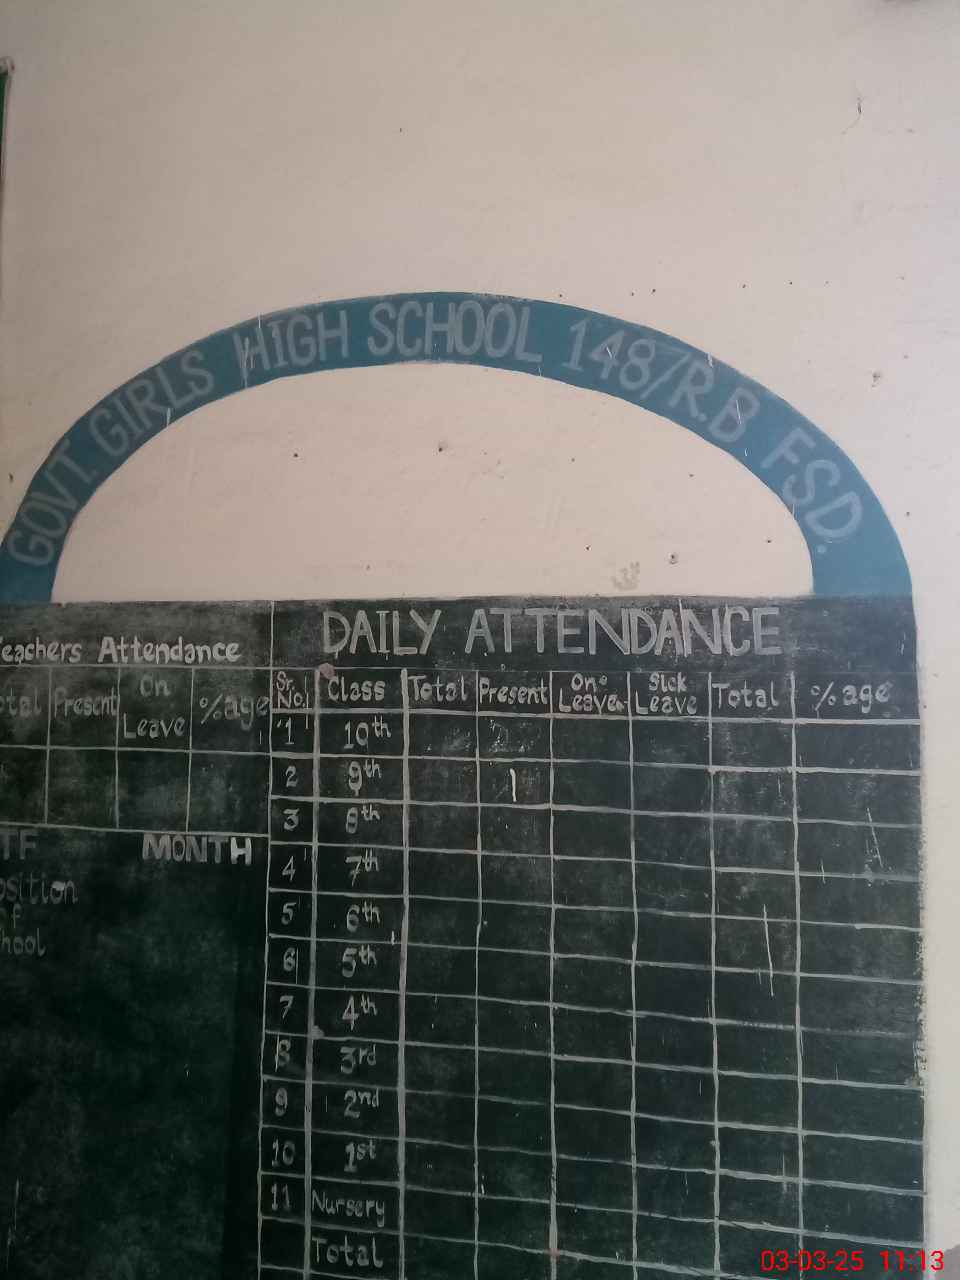 GOVT. GIRLS HIGH SCHOOL 148/R.B FSD.
Teachers Attendance
Total Present On Leave %age
MONTH
DAILY ATTENDANCE
Sr. No. Class Total Present On Leave Sick Leave Total %age
1 10th
2 9th
3 8th
4 7th
5 6th
6 5th
7 4th
8 3rd
9 2nd
10 1st
11 Nursery
Total
03-03-25 11:13